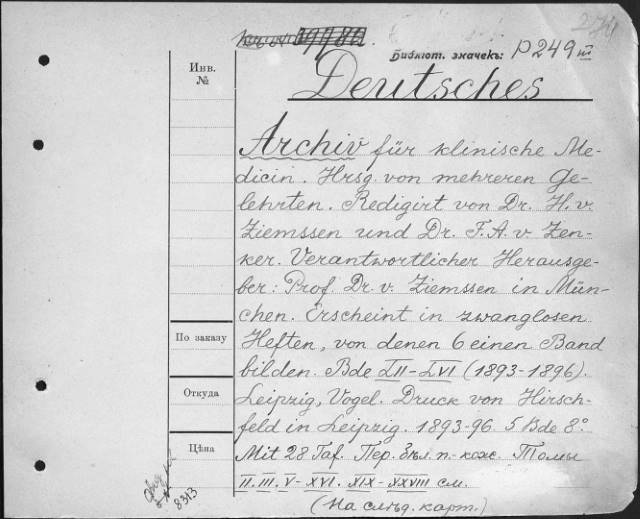 274
Библіот. значекъ: P249 III
Инв.
№
Deutsches
Archiv für klinische Me-
dicin. Hrsg. von mehreren Ge-
lehrten. Redigirt von Dr. H. v.
Ziemssen und Dr. F. A. v. Zen-
ker. Verantwortlicher Herausge-
ber: Prof. Dr. v. Ziemssen in Mün-
chen. Erscheint in zwanglosen
По заказу
Heften, von denen 6 einen Band
bilden. Bde LII-LVI (1893-1896).
Откуда
Leipzig, Vogel. Druck von Hirsch-
feld in Leipzig. 1893-96. 5 Bde 8°
Цѣна
Mit 28 Taf. Пер. Зел. п.-кож. Томы
II. III. V-XVI. XIX-XXVIII см.
8313
(На слѣд. карт.)